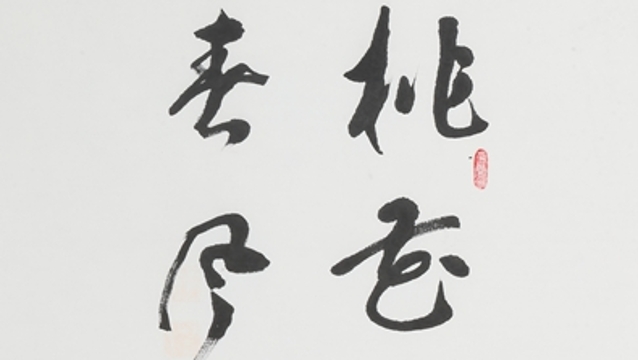 桃花
春风